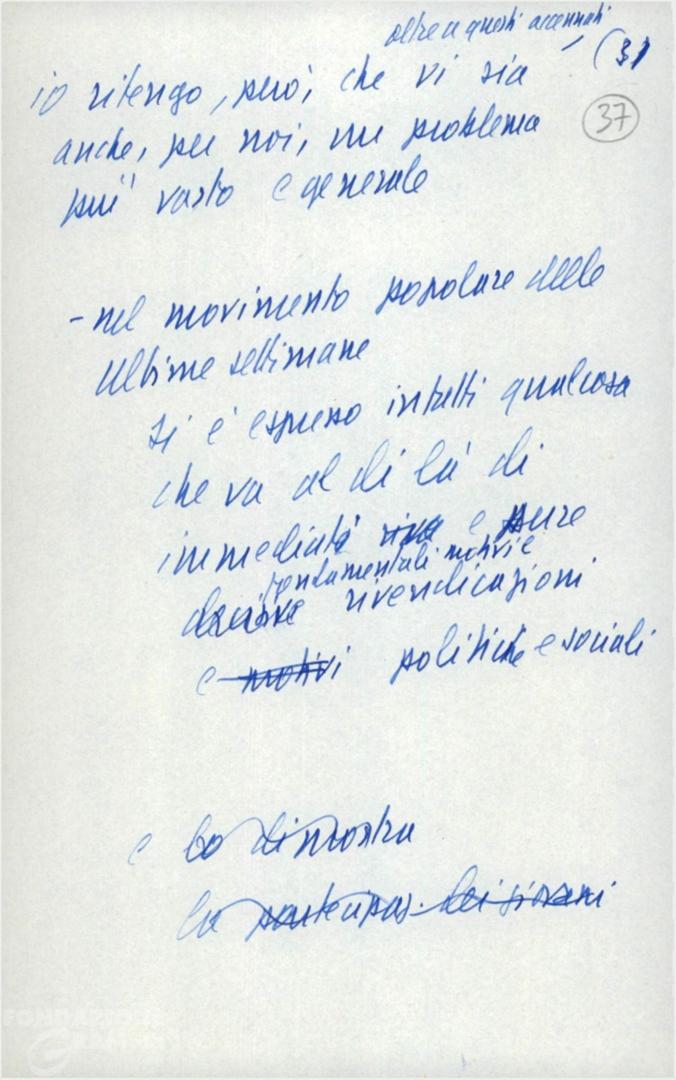 oltre a questi accennati
(3)
io ritengo, però, che vi sia
37
anche, per noi, un problema
piu' vasto e generale
- nel movimento popolare delle
ultime settimane
si e' espresso infatti qualcosa
che va al di la' di
immediate riva e pure
fondamentali motivi e
decisive rivendicazioni
e motivi politiche e sociali
e lo dimostra
la partecipaz. dei giovani
FONDAZIONE
GRAMSCI